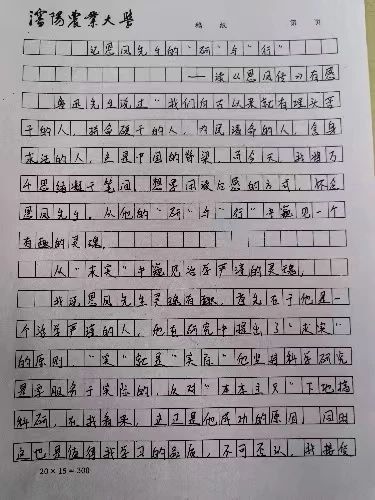 瀋陽農業大學 稿纸 第 页
记恩凤先生的“研”与“行”
——读《恩凤传》有感
鲁迅先生说过“我们自古以来就有埋头苦
干的人，拼命硬干的人，为民请命的人，舍身
求法的人，这是中国的脊梁。而今天，我将万
千思绪凝于笔间，想
恩凤先生。从他的“研”与“行”中窥见一个
有趣的灵魂。
从“求实”中窥见治学严谨的灵魂。
我说恩凤先生灵魂有趣，首先在于他是一
个治学严谨的人，他在研究中提出了“求实”
的原则，“实”就是“实际”他坚持科学研究
要服务于实际的，反对“本本主义”下地搞
科研，在我看来，这正是他成功的原因，同时
这也是值得我学习的品质，不可否认，我接触
20×15=300